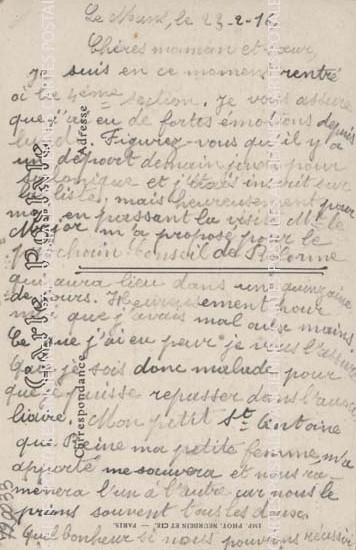 Le Mans, le 23-2-16
Chères maman et sœur,
Je suis en ce moment rentré
à la 4ème section. Je vous assure
que j'ai eu de fortes émotions depuis
lundi. Figurez-vous qu'il y a
un départ demain jeudi pour
Salonique et j'étais inscrit sur
la liste, mais heureusement pour
moi en passant la visite M. le
Major m'a proposé pour le
prochain Conseil de Réforme
qui aura lieu dans une quinzaine
de jours. Heureusement pour
moi que j'avais mal aux mains
Ce que j'ai eu peur je vous l'assure
que je sois donc malade pour
que je puisse repasser dans l'auxi
liaire. Mon petit St. Antoine
que Reine ma petite femme m'a
apporté me sauvera et nous ra-
mènera l'un à l'autre car nous le
prions souvent tous les deux.
Quel bonheur si nous pouvions réussir
Carte Postale
Adresse
Correspondance
IMP. PHOT. NEURDEIN ET CIE. — PARIS.